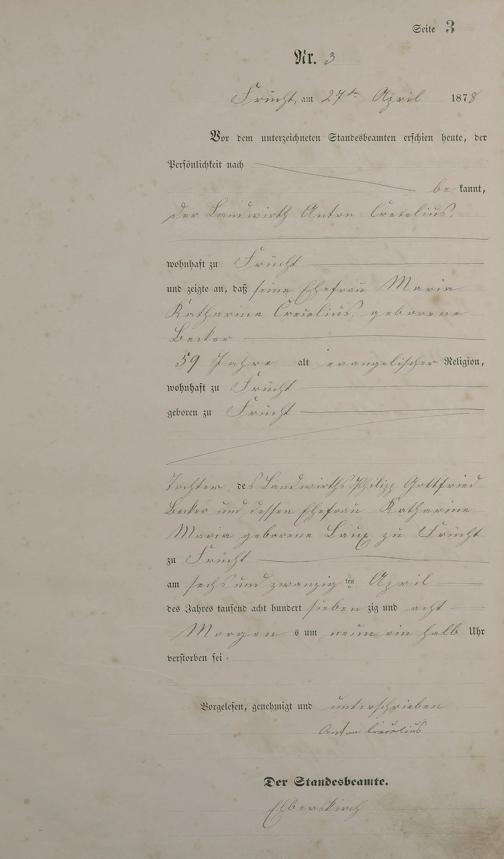 Seite 3
Nr. 3
Frücht, am 27ten April 1878
Vor dem unterzeichneten Standesbeamten erschien heute, der
Persönlichkeit nach
be kannt,
der Landwirth Anton Creielius,
wohnhaft zu Frücht
und zeigte an, daß seine Ehefrau Maria
Katharine Creielius, geborene
Becker
59 Jahre alt evangelischer Religion,
wohnhaft zu Frücht
geboren zu Frücht
Tochter des Landwirths Philipp Gottfried
Becker und dessen Ehefrau Katharine
Maria geborene Laux zu Frücht
zu Frücht
am sechs und zwanzig ten April
des Jahres tausend acht hundert sieben zig und acht
Morgen s um neun ein halb Uhr
verstorben sei.
Vorgelesen, genehmigt und unterschrieben
Anton Creielius
Der Standesbeamte.
Elberskirch